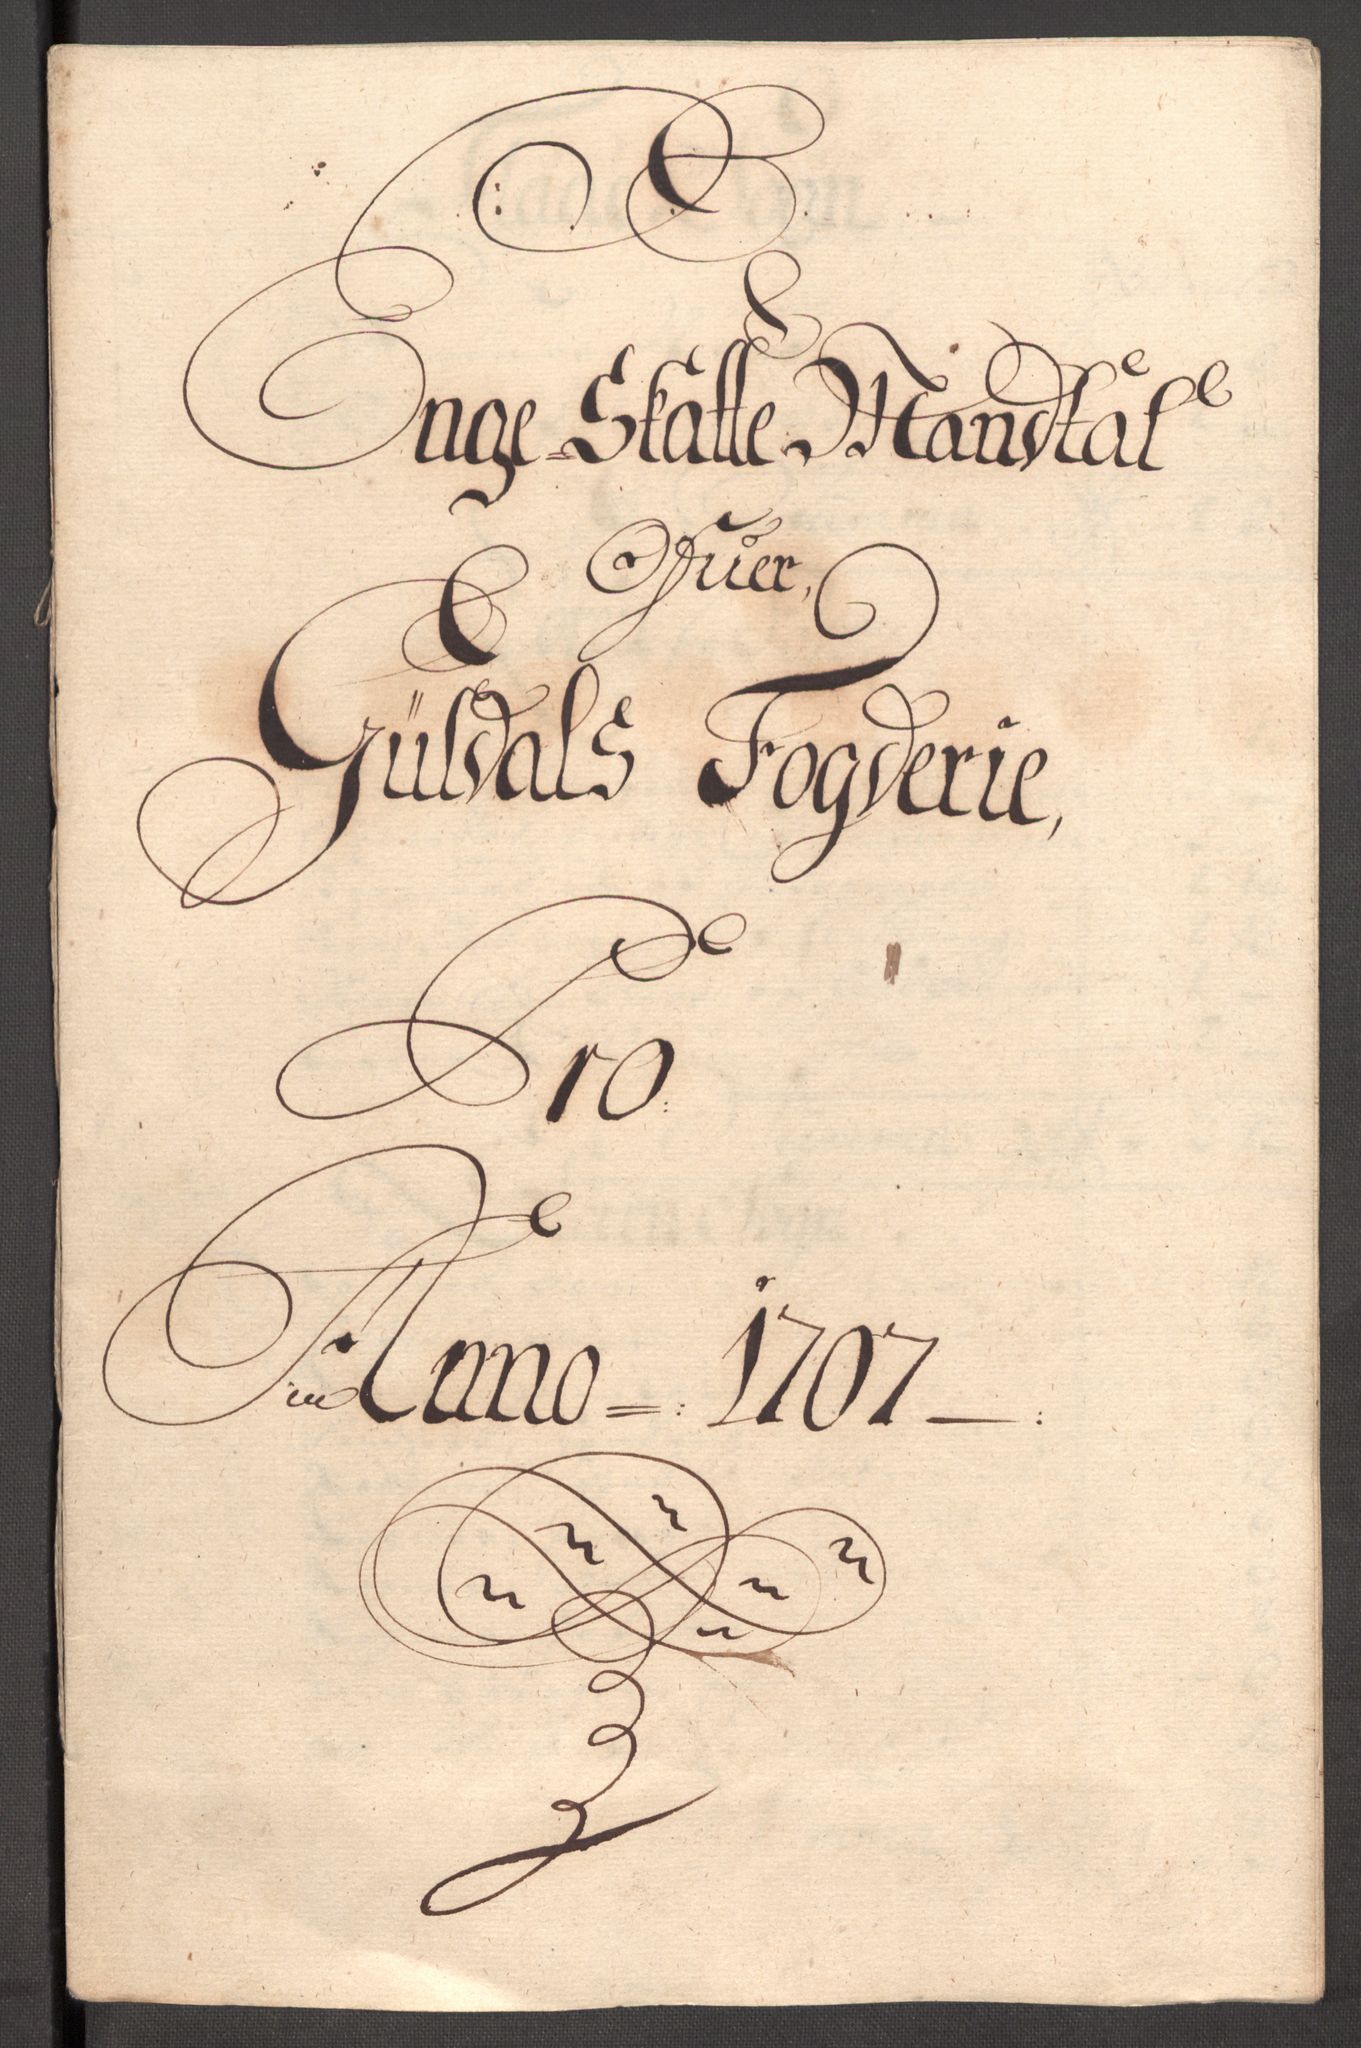 Enge-Skatte Mandtal
Ofuer,
Güldals Fogderie,
Pro:
Anno =: 1707 — :